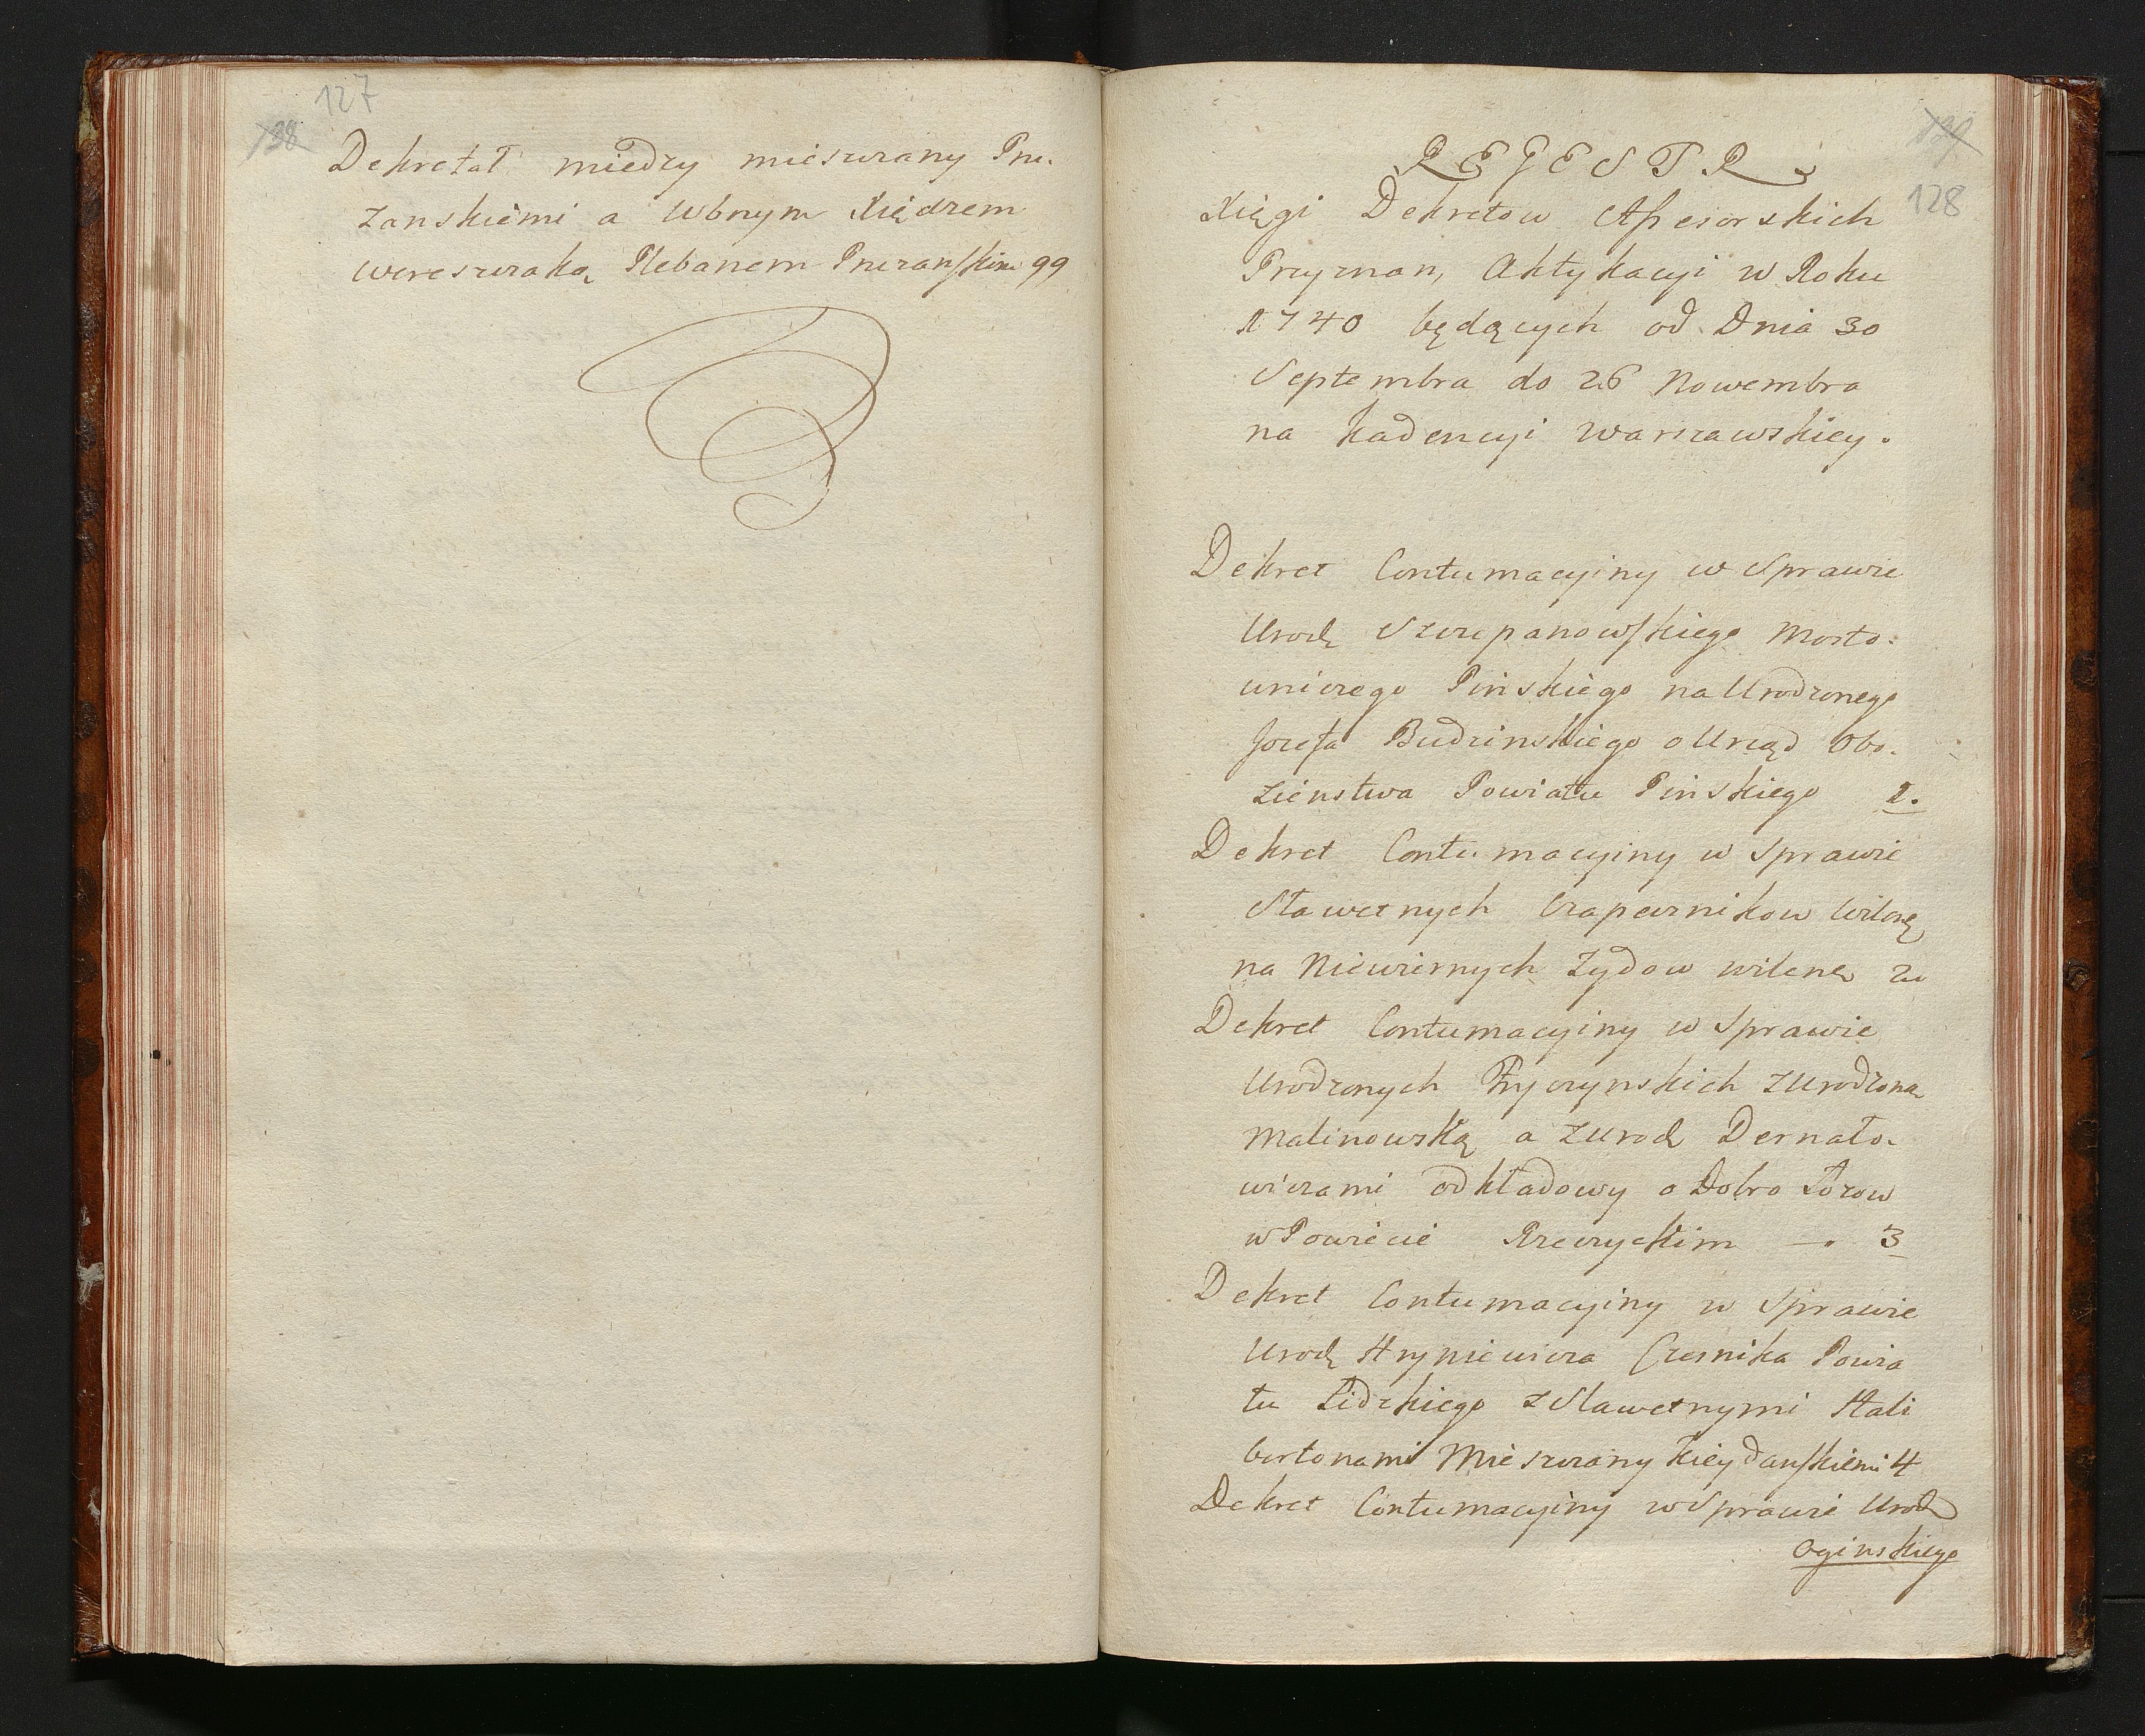 127
138
Dekretał miedzy mieszczany Pru-
zanskiemi a Wbnym Xiędzem
Wereszczaką Plebanem Pruzanskim 99
REGESTR
139
128
Xięgi Dekretow Assesorskich
Przyznan, Aktykacyi w Roku
1740 będących od Dnia 30
Septembra do 26 Nowembra
na Kadencyi Warszawskiey.
Dekret Contumacyiny w Sprawie
Urodz Szczepanowskiego Mosto-
wniczego Pinskiego na Urodzonego
Jozefa Budzinskiego o Urząd Obo-
zienstwa Powiatu Pinskiego 1.
Dekret Contumacyiny w Sprawie
Sławetnych Czapcznikow Wilenz
na Niewiernych Zydow wilenz 2
Dekret Contumacyiny w Sprawie
Urodzonych Fryczynskich z Urodzoną
Malinowską a z Urodz Dernało-
wiczami odkładowy o Dobro
w Powiecie Rzeczyckim — 3
Dekret Contumacyiny w Sprawie
Urodz Hryniewicza Czesnika Powia
tu Lidzkiego z Sławetnymi Hali
bortonami Mieszczany Kieydanskiemi 4
Dekret Contumacyiny w Sprawie Urodz
Oginskiego